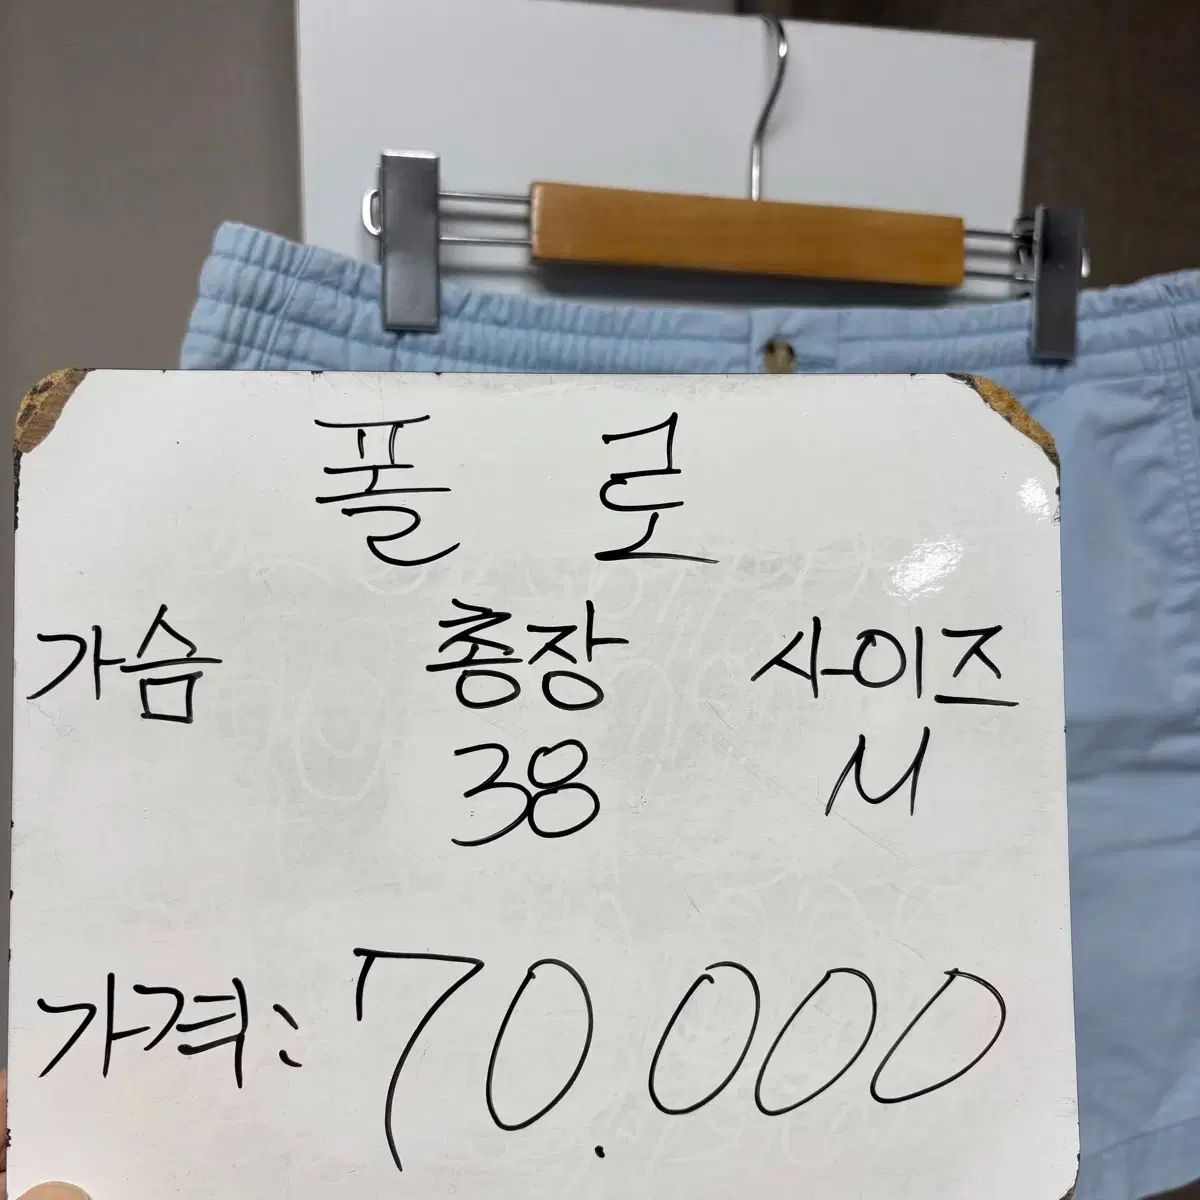 폴로
가슴 총장 사이즈
38 M
가격: 70.000